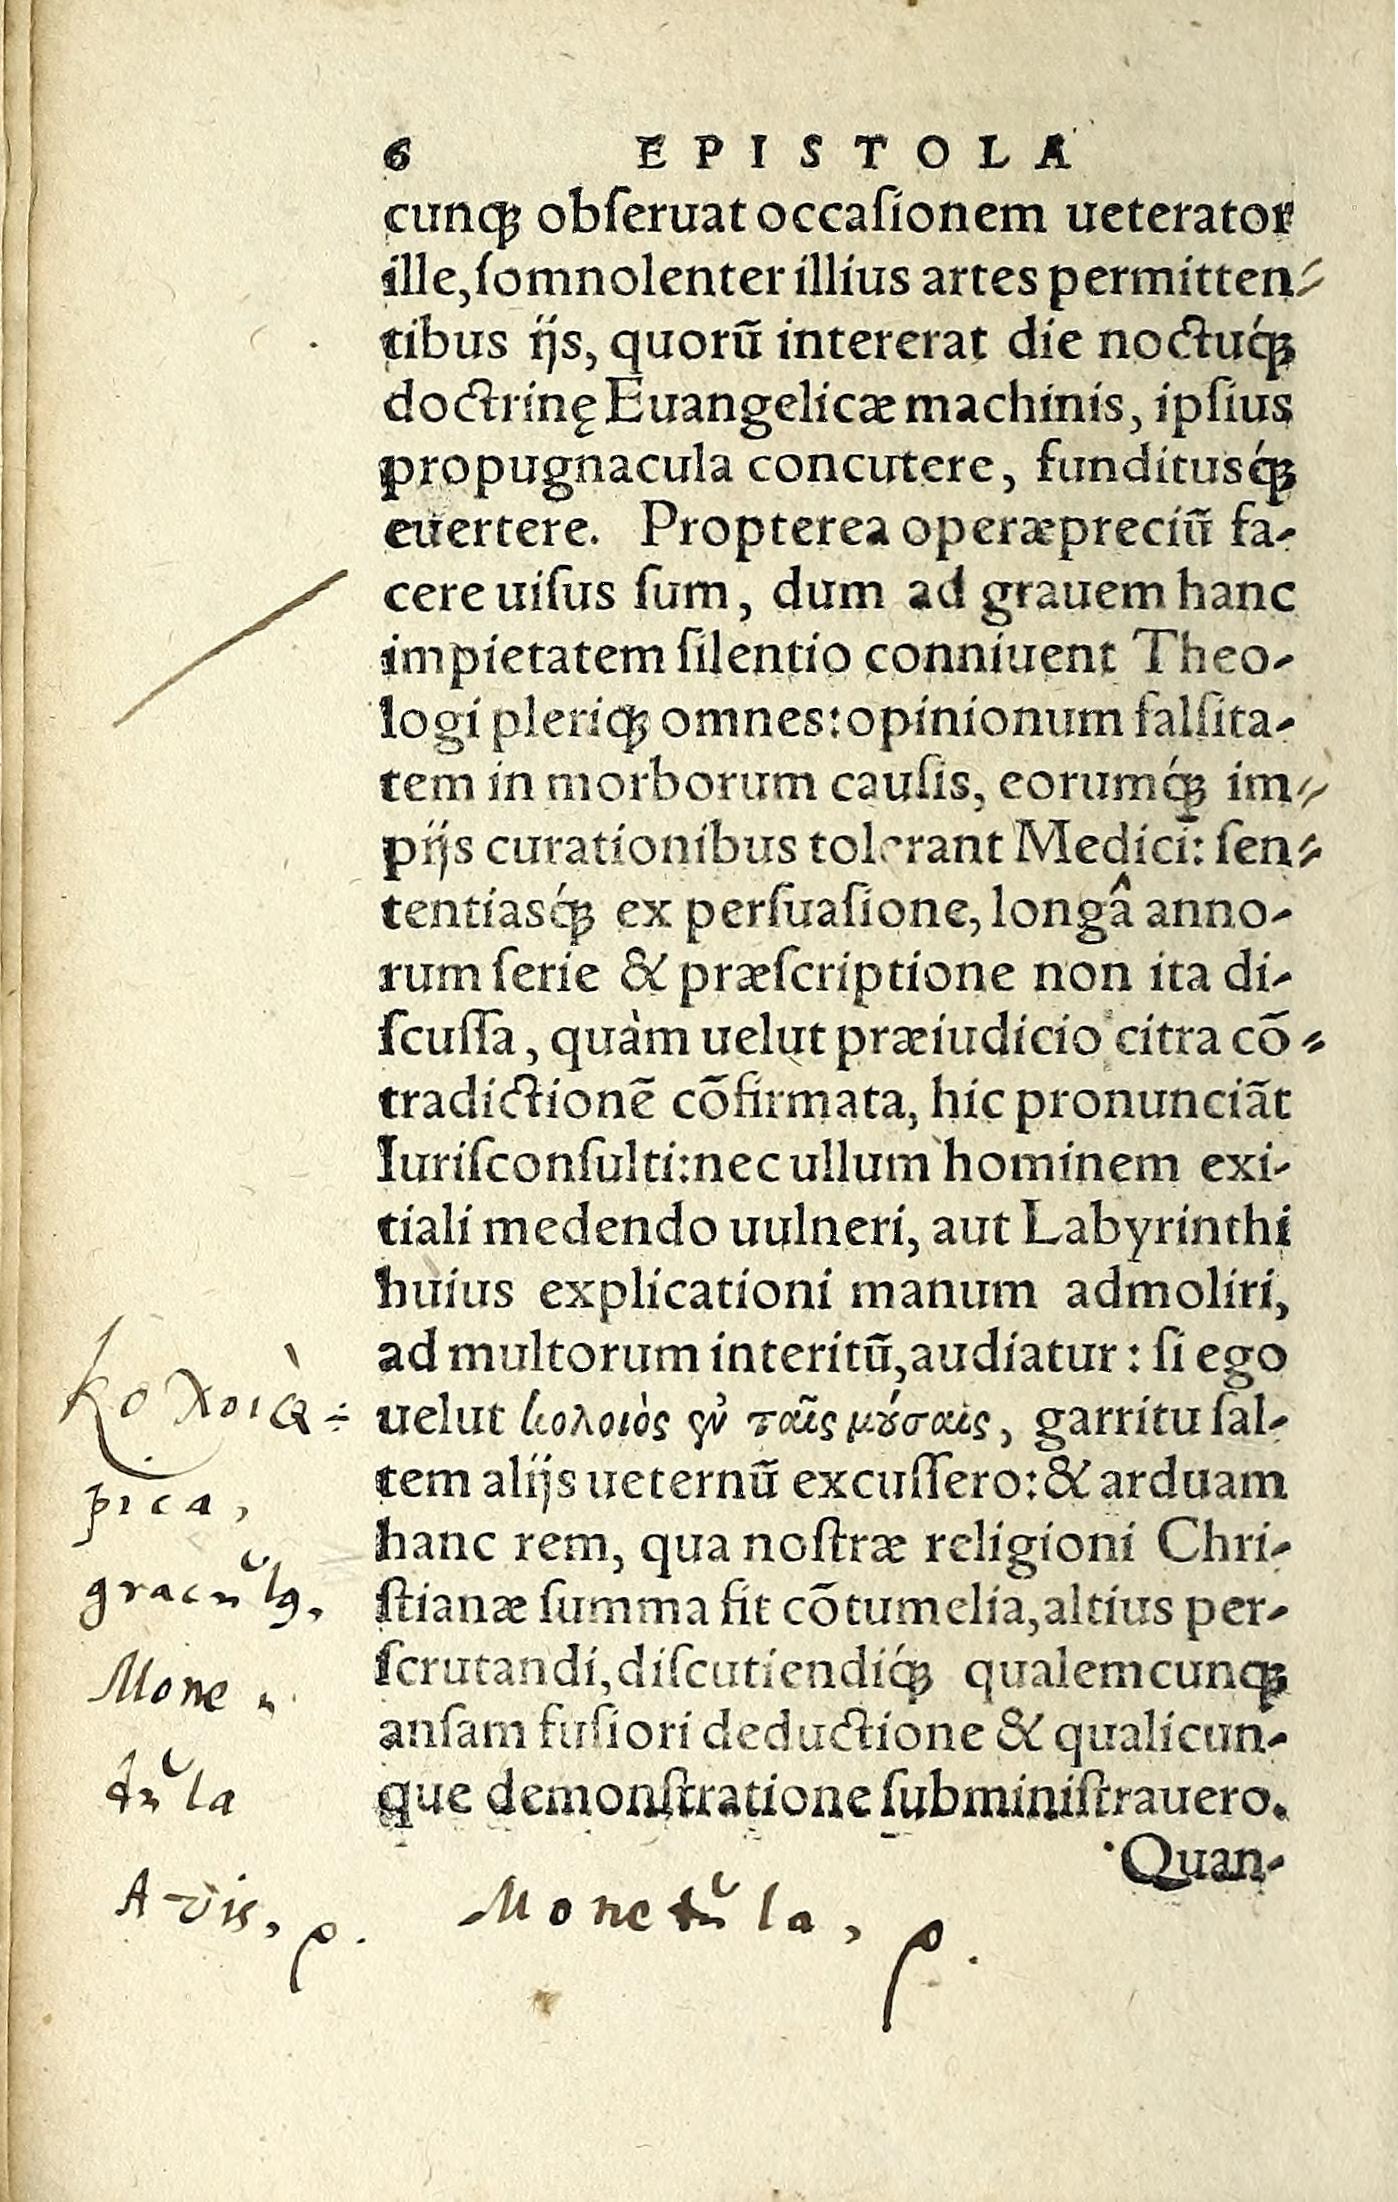 6 EPISTOLA
cunq́; obſeruat occaſionem ueterator
ille, ſomnolenter illius artes permitten-
tibus ijs, quorũ intererat die noctuq́;
doctrinę Euangelicæ machinis, ipſius
propugnacula concutere, funditusq́;
euertere. Propterea operæpreciũ fa-
cere uiſus ſum, dum ad grauem hanc
impietatem ſilentio conniuent Theo-
logi pleriq; omnes: opinionum falſita-
tem in morborum cauſis, eorumq́; im-
pijs curationibus tolerant Medici: ſen-
tentiasq́; ex perſuaſione, longâ anno-
rum ſerie & præſcriptione non ita di-
ſcuſſa, quàm uelut præiudicio citra cõ-
tradictionẽ cõfirmata, hic pronunciãt
Iuriſconſulti: nec ullum hominem exi-
tiali medendo uulneri, aut Labyrinthi
huius explicationi manum admoliri,
ad multorum interitũ, audiatur: ſi ego
uelut κολοιὸς ἐν ταῖς μούσαις, garritu ſal-
tem alijs ueternũ excuſſero: & arduam
hanc rem, qua noſtræ religioni Chri-
ſtianæ ſumma fit cõtumelia, altius per-
ſcrutandi, diſcutiendiq́; qualemcunq;
anſam fuſiori deductione & qualicun-
que demonſtratione ſubminiſtrauero.
Quan-
pica,
Mone
tŭla
Avis,
Monetŭla,